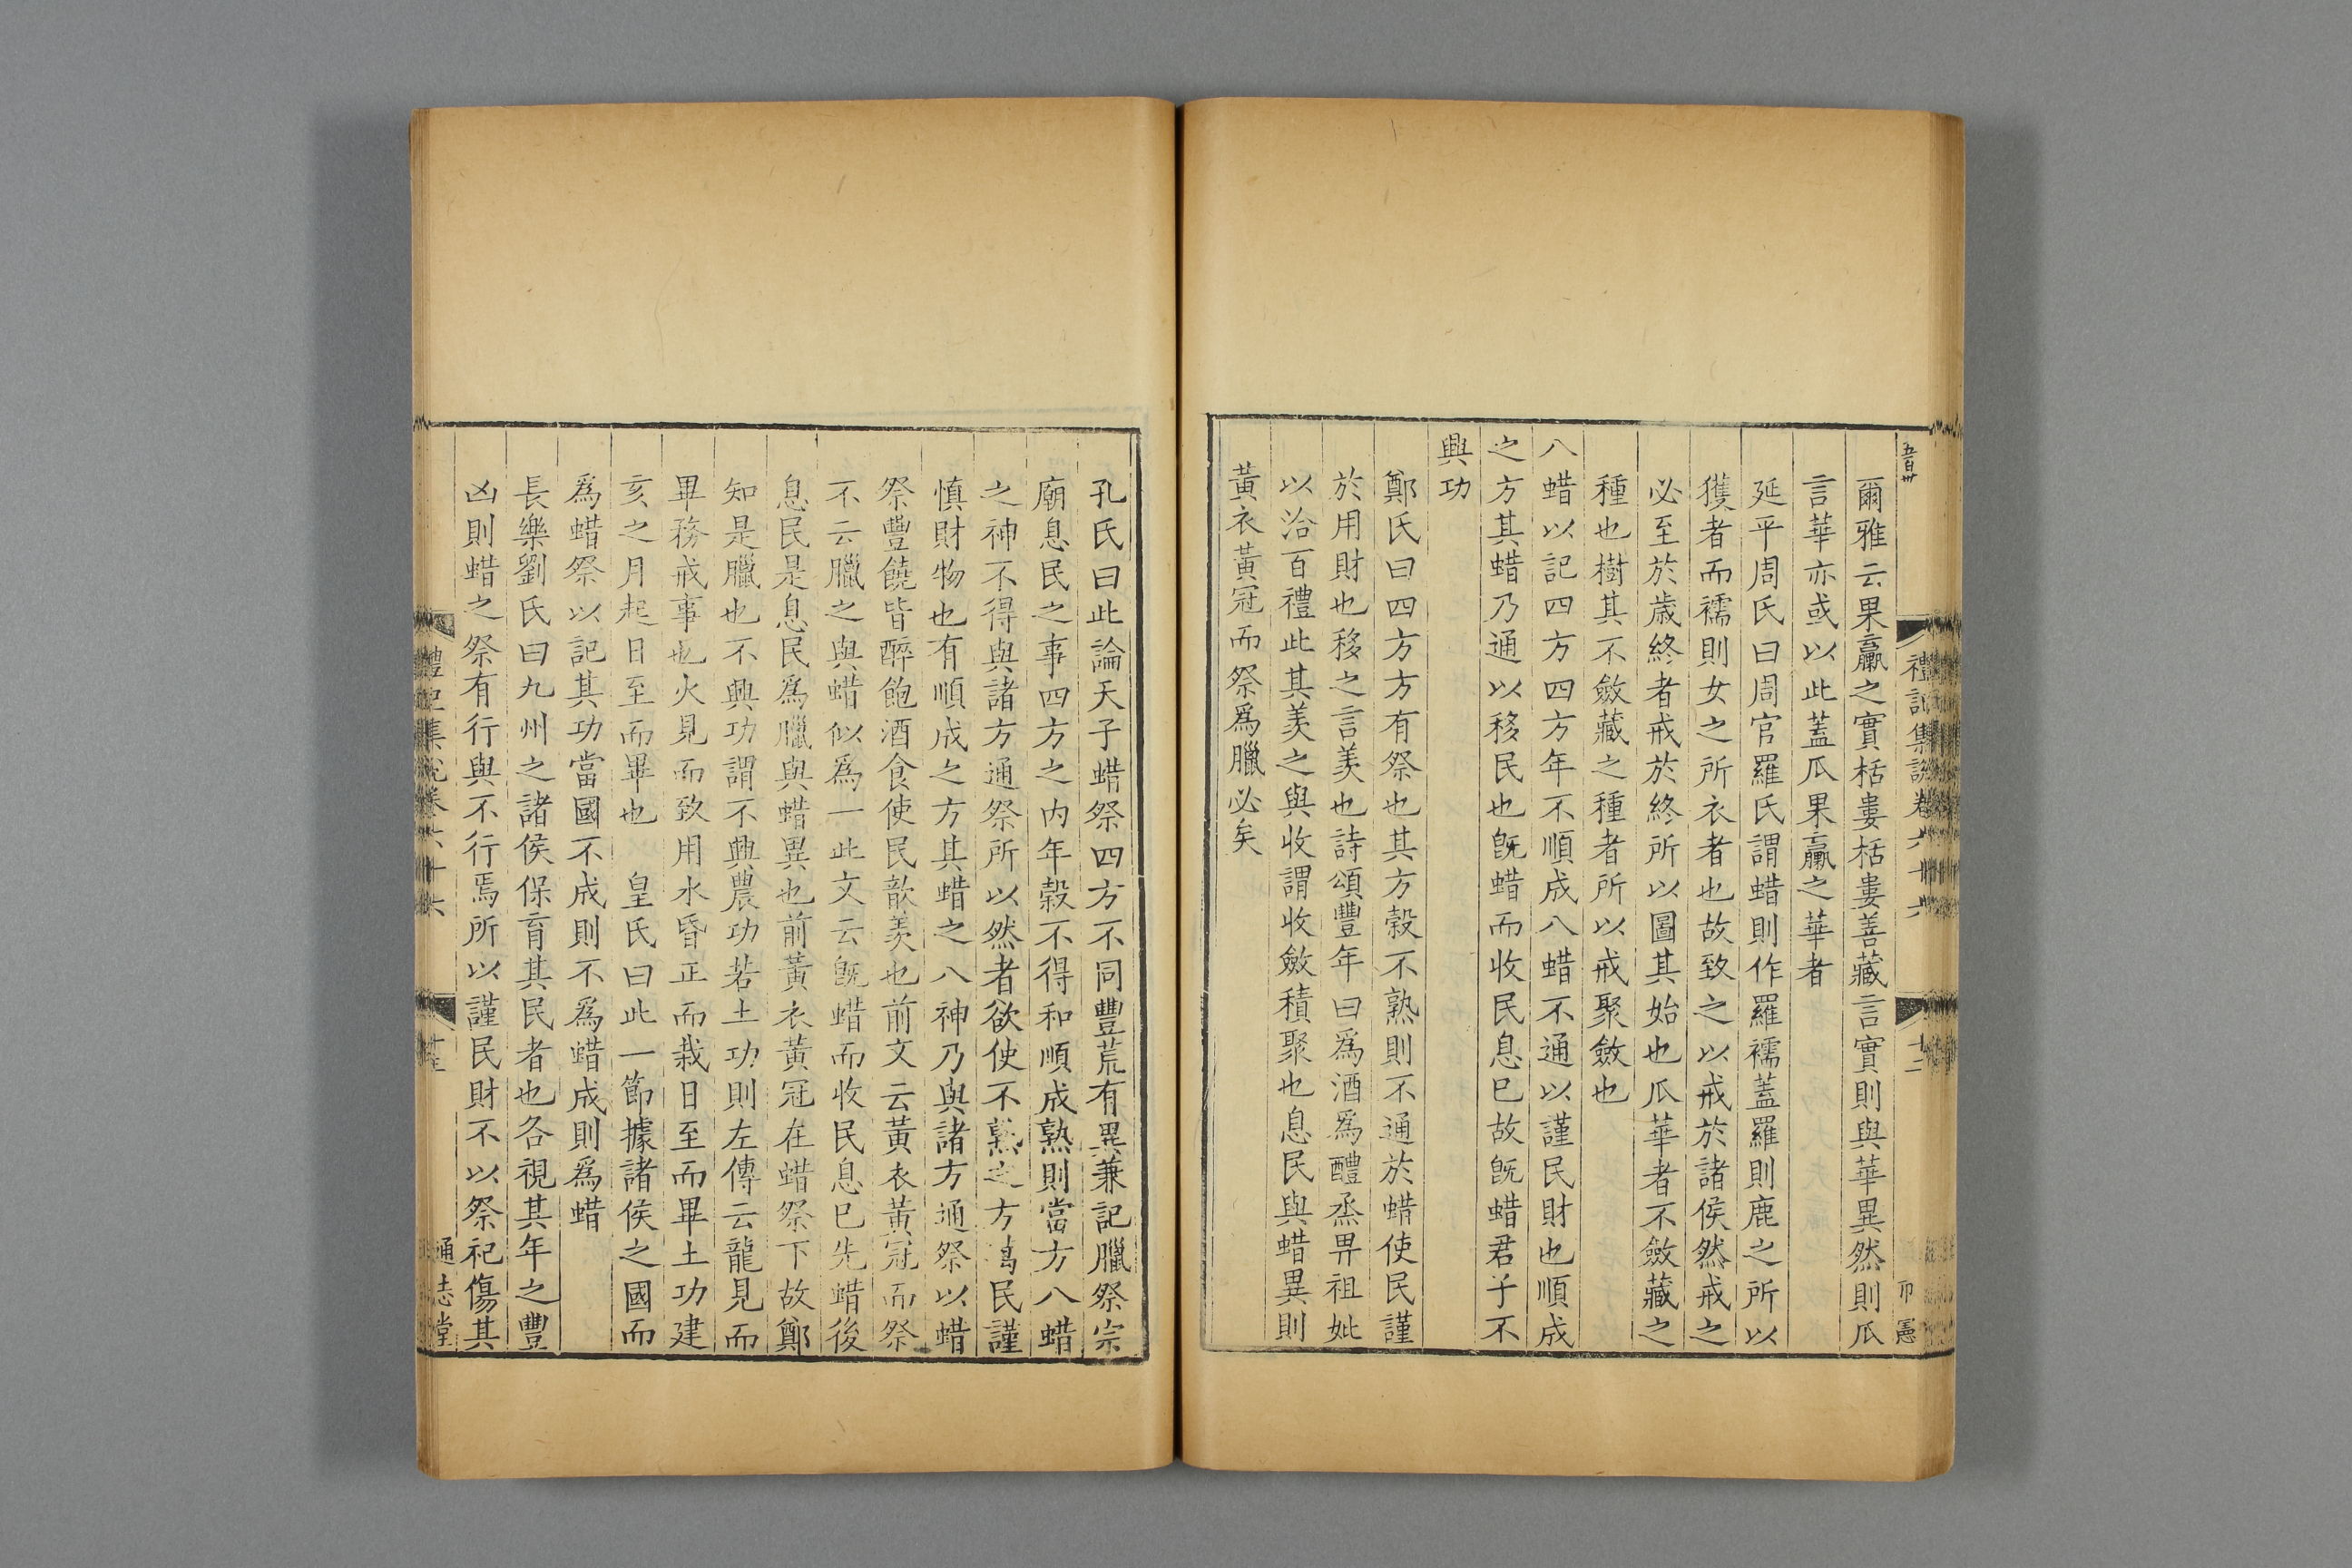 五百卅
禮記集說卷六十六
十二
爾雅云果臝之實栝婁栝婁善藏言實則與華異然則瓜
言華亦或以此蓋瓜果臝之華者
延平周氏曰周官羅氏謂蜡則作羅襦蓋羅則鹿之所以
獲者而襦則女之所衣者也故致之以戒於諸侯然戒之
必至於歲終者戒於終所以圖其始也瓜華者不斂藏之
種也樹其不斂藏之種者所以戒聚斂也
八蜡以記四方四方年不順成八蜡不通以謹民財也順成
之方其蜡乃通以移民也旣蜡而收民息已故旣蜡君子不
興功
鄭氏曰四方方有祭也其方穀不熟則不通於蜡使民謹
於用財也移之言羨也詩頌豐年曰爲酒爲醴烝畀祖妣
以洽百禮此其羨之與收謂收斂積聚也息民與蜡異則
黃衣黃冠而祭爲臘必矣
孔氏曰此論天子蜡祭四方不同豐荒有異兼記臘祭宗
廟息民之事四方之內年穀不得和順成熟則當方八蜡
之神不得與諸方通祭所以然者欲使不熟之方萬民謹
慎財物也有順成之方其蜡之八神乃與諸方通祭以蜡
祭豐饒皆醉飽酒食使民歆羨也前文云黃衣黃冠而祭
不云臘之與蜡似爲一此文云旣蜡而收民息已先蜡後
息民是息民爲臘與蜡異也前黃衣黃冠在蜡祭下故鄭
知是臘也不興功謂不興農功若土功則左傳云龍見而
畢務戒事也火見而致用水昏正而栽日至而畢土功建
亥之月起日至而畢也 皇氏曰此一節據諸侯之國而
爲蜡祭以記其功當國不成則不爲蜡成則爲蜡
長樂劉氏曰九州之諸侯保育其民者也各視其年之豐
凶則蜡之祭有行與不行焉所以謹民財不以祭祀傷其
禮記集說卷六十六
通志堂